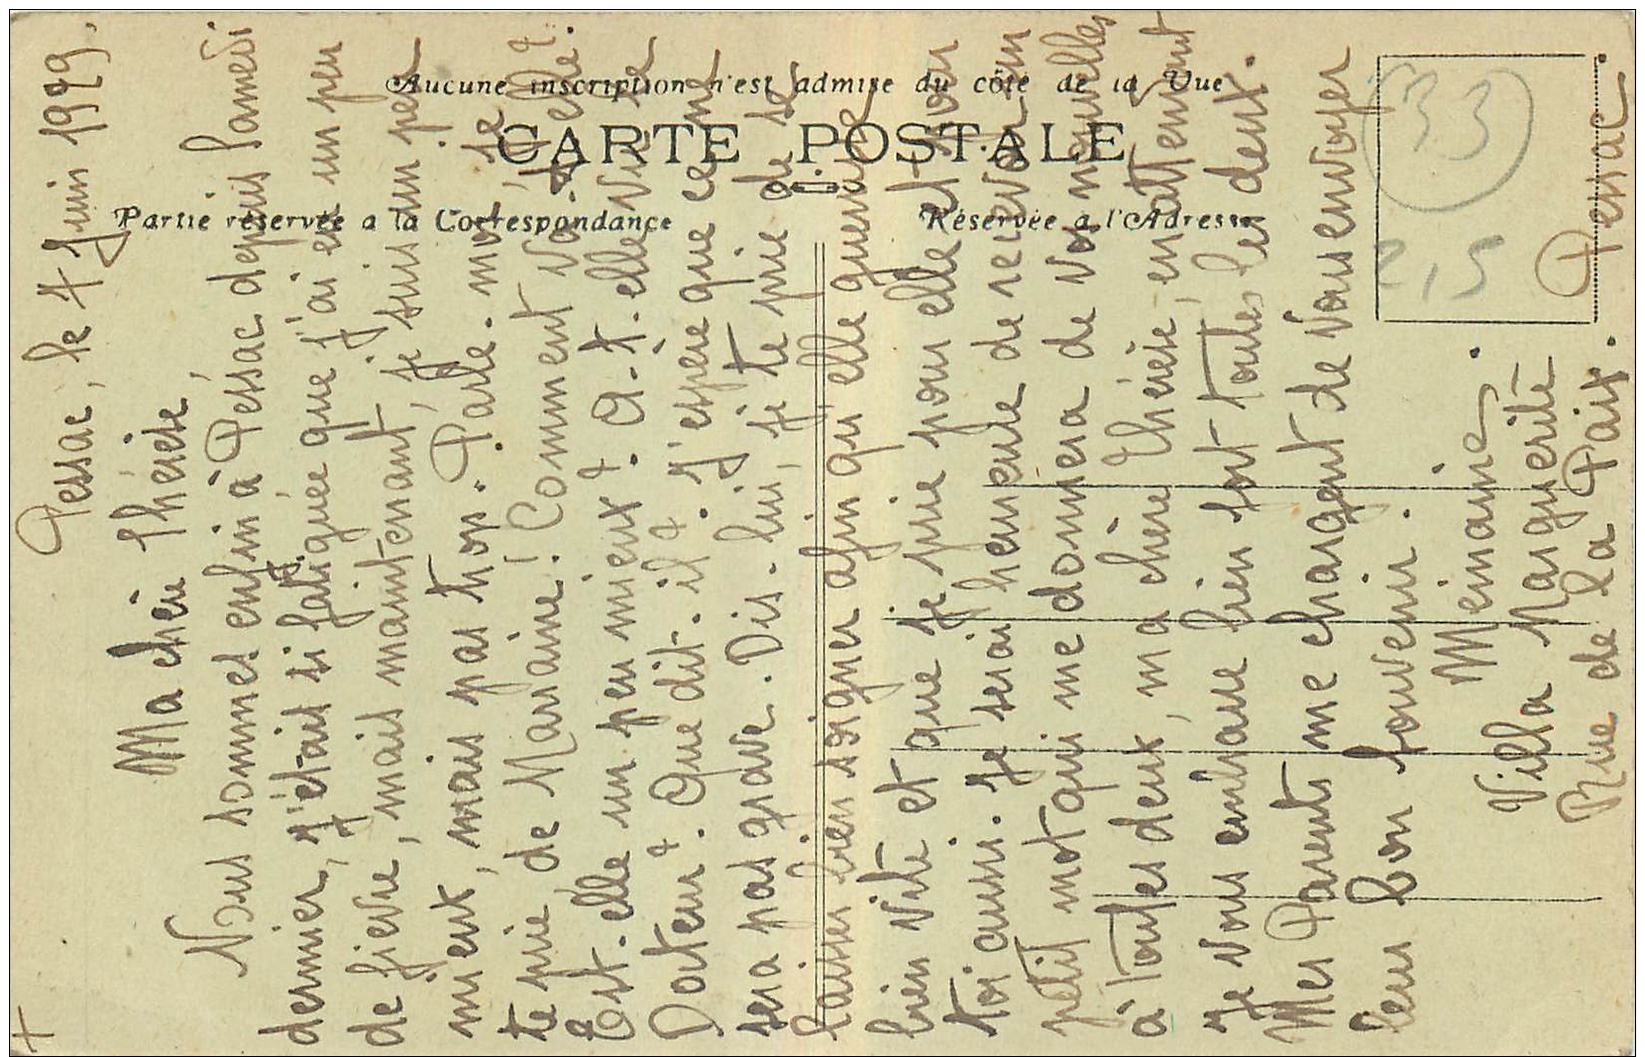 Aucune inscription n'est admise du côté de la Vue
CARTE POSTALE
Partie réservée à la Correspondance
Réservée à l'Adresse
33
2,5
+
Pessac, le 4 Juin 1929.
Ma chère Thérèse,
Nous sommes enfin à Pessac depuis Samedi
dernier, j'étais si fatiguée que j'ai eu un peu
de fièvre, mais maintenant, je suis un peu
mieux, mais pas trop. Parle. moi, je
te prie de Marraine! Comment va. t. elle?
Est. elle un peu mieux? A. t. elle vu le
Docteur? Que dit. il? J'espère que ce ne
sera pas grave. Dis. lui, je te prie de se
laisser bien soigner afin qu'elle guérisse
bien vite et que je prie pour elle et pour
toi aussi. Je serai heureuse de recevoir un
petit mot qui me donnera de vos nouvelles
à toutes deux, ma chère Thérèse, en attendant
je vous embrasse bien fort toutes les deux.
Mes Parents me chargent de vous envoyer
leur bon souvenir.
Villa Marguerite
Rue de la Paix. Pessac.